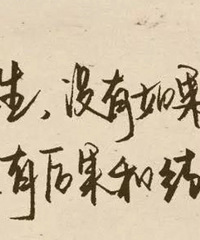 生、没有如果
有后果和结